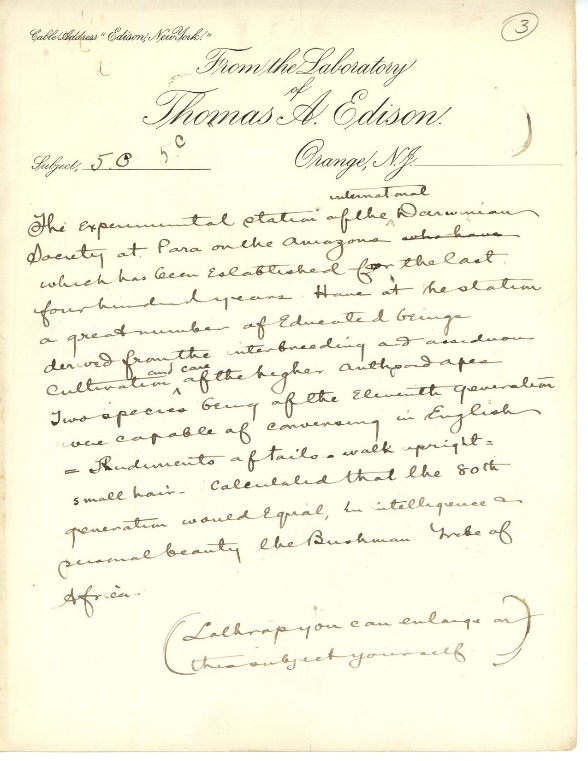 3
Cable Address "Edison, New York."
From the Laboratory
of
Thomas A. Edison.
Orange, N.J.
Subject, 5.C 5C
international
The experimental station of the Darwinian
Society at Para on the Amazons who have
which has been Established for the last
four hundred years. Have at the station
a great number of Educated beings
derived from the interbreeding and assiduous
and care
cultivation of the higher anthpoid apes
Two species being of the Eleventh generation
were capable of conversing in English
= Rudiments of tails - walk upright =
small hair - calculated that the 80th
generation would Equal, in intelligence &
personal beauty the Bushman Tribe of
Africa.
(Lathrop you can enlarge on
this subject yourself)